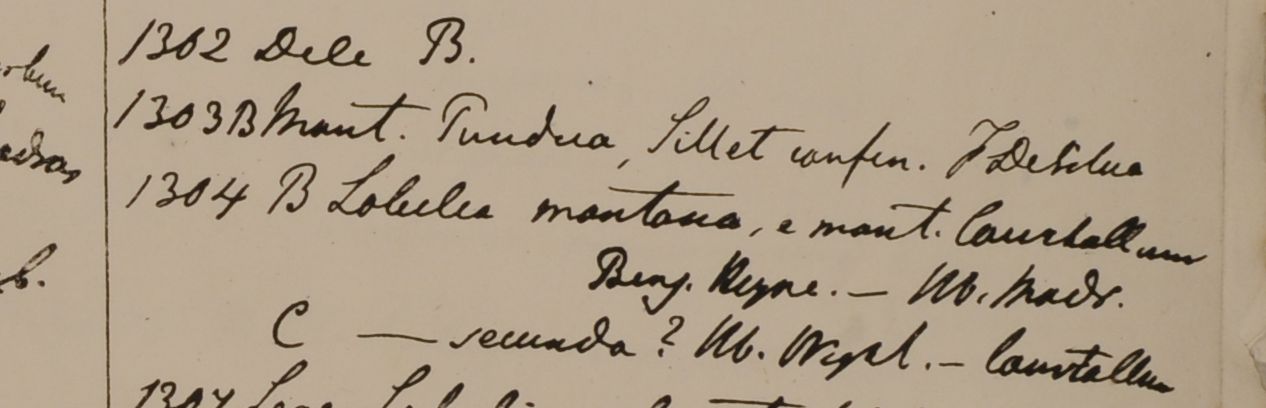 1302 Dele B.
1303 B Mont. Pundua, Sillet confin. F DeSilva
1304 B Lobelia montana, e mont. Courtallum
Benj. Heyne. — Hb. Madr.
C — secunda? Hb. Wight. — Courtallum
1307